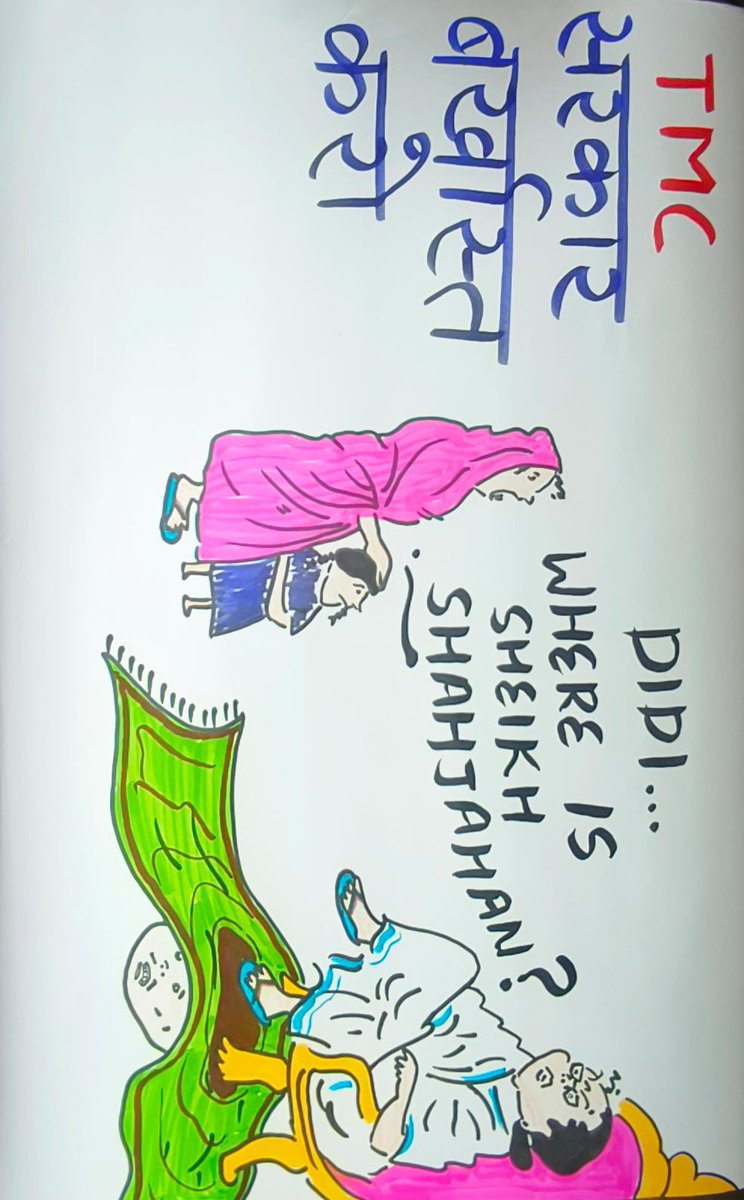 TMC
सरकार
बर्खास्त
करो
DIDI...
WHERE IS
SHEIKH
SHAHJAHAN?